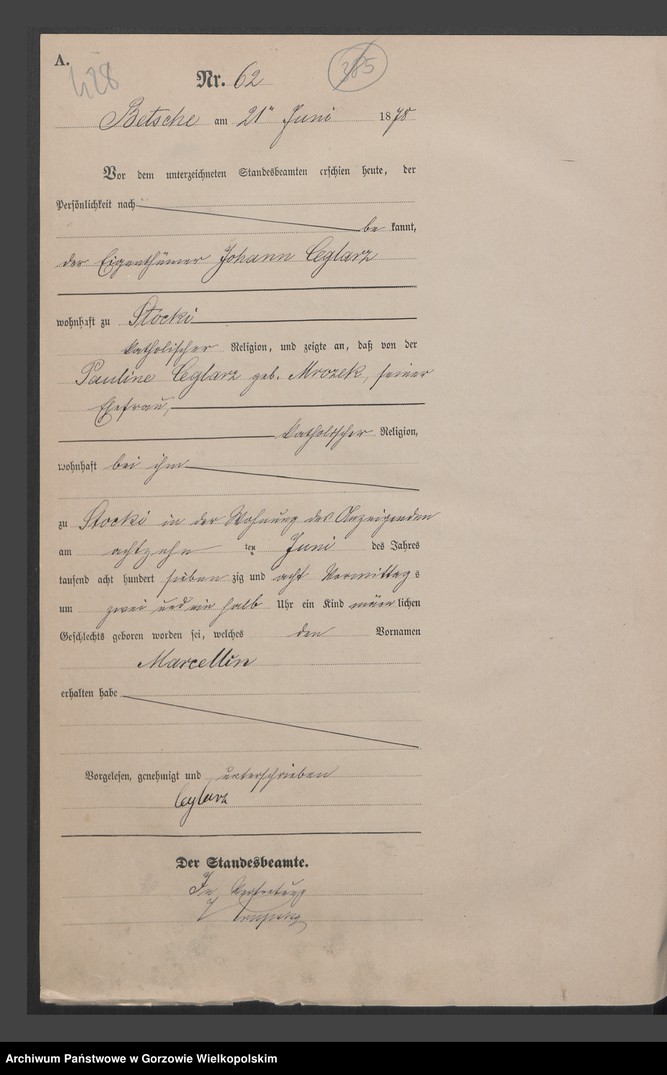 A.
428
Nr. 62
385
Betsche am 21n Juni 1878
Vor dem unterzeichneten Standesbeamten erschien heute, der
Persönlichkeit nach
be kannt,
der Eigenthümer Johann Ceglarz
wohnhaft zu Stocki
katholischer Religion, und zeigte an, daß von der
Pauline Ceglarz geb. Mrozek, seiner
Ehefrau,
katholischer Religion,
wohnhaft bei ihm
zu Stocki in der Wohnung des Anzeigenden
am achtzehn ten Juni des Jahres
tausend acht hundert sieben zig und acht Vormittag s
um zwei und ein halb Uhr ein Kind männ lichen
Geschlechts geboren worden sei, welches den Vornamen
Marcellin
erhalten habe
Vorgelesen, genehmigt und unterschrieben
Ceglarz
Der Standesbeamte.
In Vertretung
Archiwum Państwowe w Gorzowie Wielkopolskim